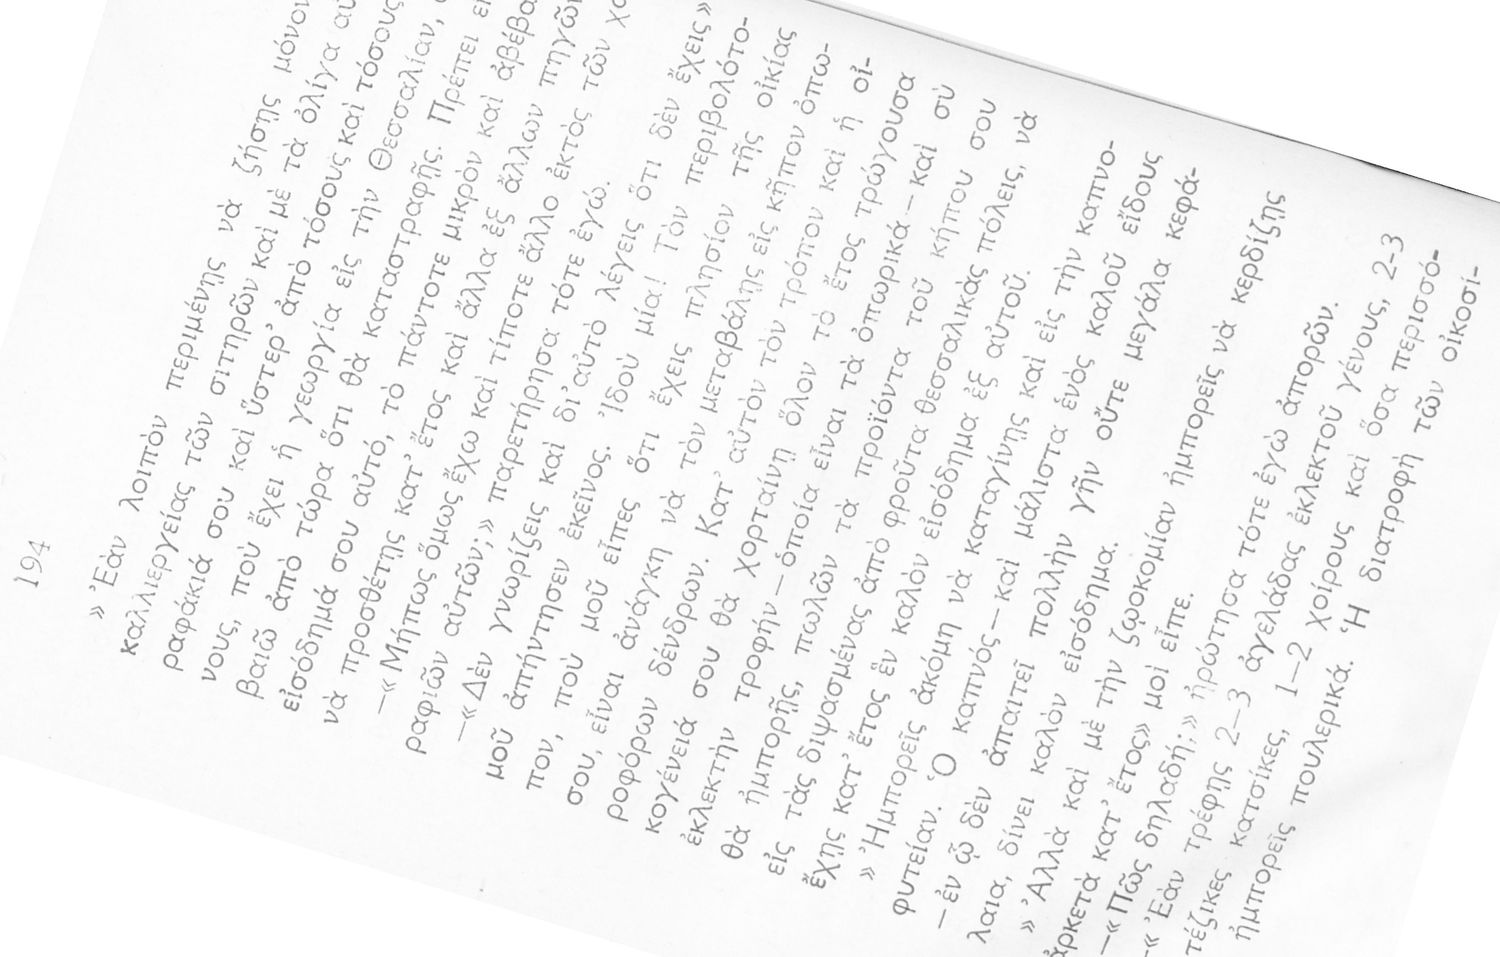 194
» Ἐὰν λοιπὸν περιμένῃς νὰ ζήσῃς μόνον
καλλιεργείας τῶν σιτηρῶν καὶ μὲ τὰ ὀλίγα
ραφάκιά σου καὶ ὕστερ' ἀπὸ τόσους καὶ τόσους
νους, ποὺ ἔχει ἡ γεωργία εἰς τὴν Θεσσαλίαν,
βαιῶ ἀπὸ τώρα ὅτι θὰ καταστραφῇς. Πρέπει
εἰσόδημά σου αὐτό, τὸ πάντοτε μικρὸν καὶ
νὰ προσθέτῃς κατ' ἔτος καὶ ἄλλα ἐξ ἄλλων πηγῶν
—« Μήπως ὅμως ἔχω καὶ τίποτε ἄλλο ἐκτὸς τῶν
ραφιῶν αὐτῶν; » παρετήρησα τότε ἐγώ.
—« Δὲν γνωρίζεις καὶ δι' αὐτὸ λέγεις ὅτι δὲν ἔχεις »
μοῦ ἀπήντησεν ἐκεῖνος. Ἰδοὺ μία! Τὸν περιβολότο-
πον, ποὺ μοῦ εἶπες ὅτι ἔχεις πλησίον τῆς οἰκίας
σου, εἶναι ἀνάγκη νὰ τὸν μεταβάλῃς εἰς κῆπον ὀπω-
ροφόρων δένδρων. Κατ' αὐτὸν τὸν τρόπον καὶ ἡ οἰ-
κογένειά σου θὰ χορταίνῃ ὅλον τὸ ἔτος τρώγουσα
ἐκλεκτὴν τροφήν — ὁποία εἶναι τὰ ὀπωρικά — καὶ σὺ
θὰ ἠμπορῇς, πωλῶν τὰ προϊόντα τοῦ κήπου σου
εἰς τὰς διψασμένας ἀπὸ φροῦτα θεσσαλικὰς πόλεις, νὰ
ἔχῃς κατ' ἔτος ἓν καλὸν εἰσόδημα ἐξ αὐτοῦ.
» Ἠμπορεῖς ἀκόμη νὰ καταγίνῃς καὶ εἰς τὴν καπνο-
φυτείαν. Ὁ καπνός — καὶ μάλιστα ἑνὸς καλοῦ εἴδους
— ἐν ᾧ δὲν ἀπαιτεῖ πολλὴν γῆν οὔτε μεγάλα κεφά-
λαια, δίνει καλὸν εἰσόδημα.
» Ἀλλὰ καὶ μὲ τὴν ζῳοκομίαν ἠμπορεῖς νὰ κερδίζῃς
ἀρκετὰ κατ' ἔτος» μοὶ εἶπε.
—« Πῶς δηλαδή; » ἠρώτησα τότε ἐγὼ ἀπορῶν.
—« Ἐὰν τρέφῃς 2—3 ἀγελάδας ἐκλεκτοῦ γένους, 2-3
τέζικες κατσίκες, 1—2 χοίρους καὶ ὅσα περισσό-
ἠμπορεῖς πουλερικά. Ἡ διατροφὴ τῶν οἰκοσί-